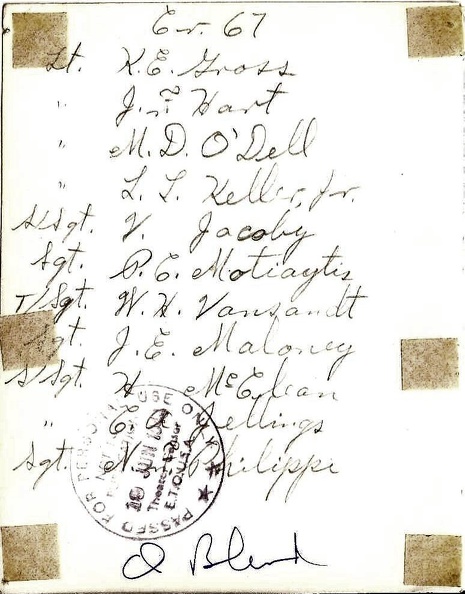 Cr. 67
Lt. K.E. Gross
" J. Hart
" M.D. O'Dell
" L.L. Keller, Jr.
S/Sgt. V. Jacoby
Sgt. P.E. Motiaytis
T/Sgt. W.H. Vansandt
Sgt. J.E. Maloney
S/Sgt. H. McClean
" E. Jellings
Sgt. N. Philippe
PASSED FOR PERSONAL USE ONLY
10 JUN
Theater Censor
E.T.O.U.S.A.